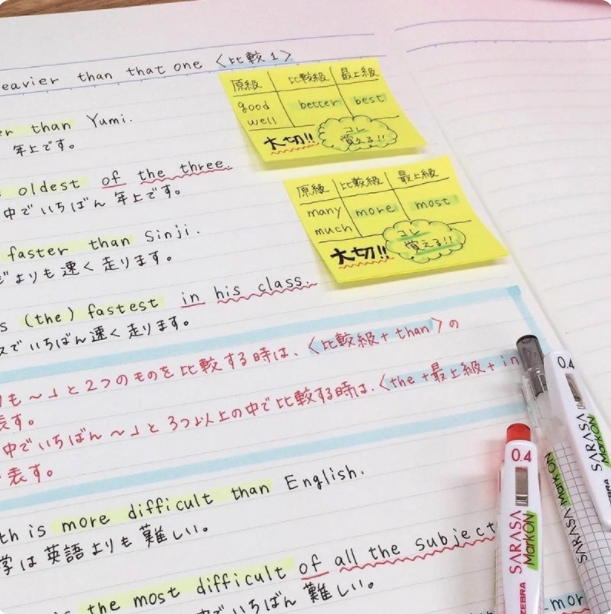 eavier than that one 〈比較1〉
er than Yumi.
年上です。
oldest of the three.
中でいちばん年上です。
faster than Sinji.
よりも速く走ります。
s (the) fastest in his class.
スでいちばん速く走ります。
も〜」と2つのものを比較する時は、〈比較級+than〉の
表す。
中でいちばん〜」と3つ以上の中で比較する時は、〈the+最上級+in
表す。
th is more difficult than English.
学は英語よりも難しい。
the most difficult of all the subject
でいちばん難しい。
mor
原級 比較級 最上級
good better best
well
大切!! コレ
覚える!!
原級 比較級 最上級
many more most
much
大切!! コレ
覚える!!
0.4
SARASA
MarkON
ZEBRA
0.4
SARASA MarkON
SARASA
MarkON